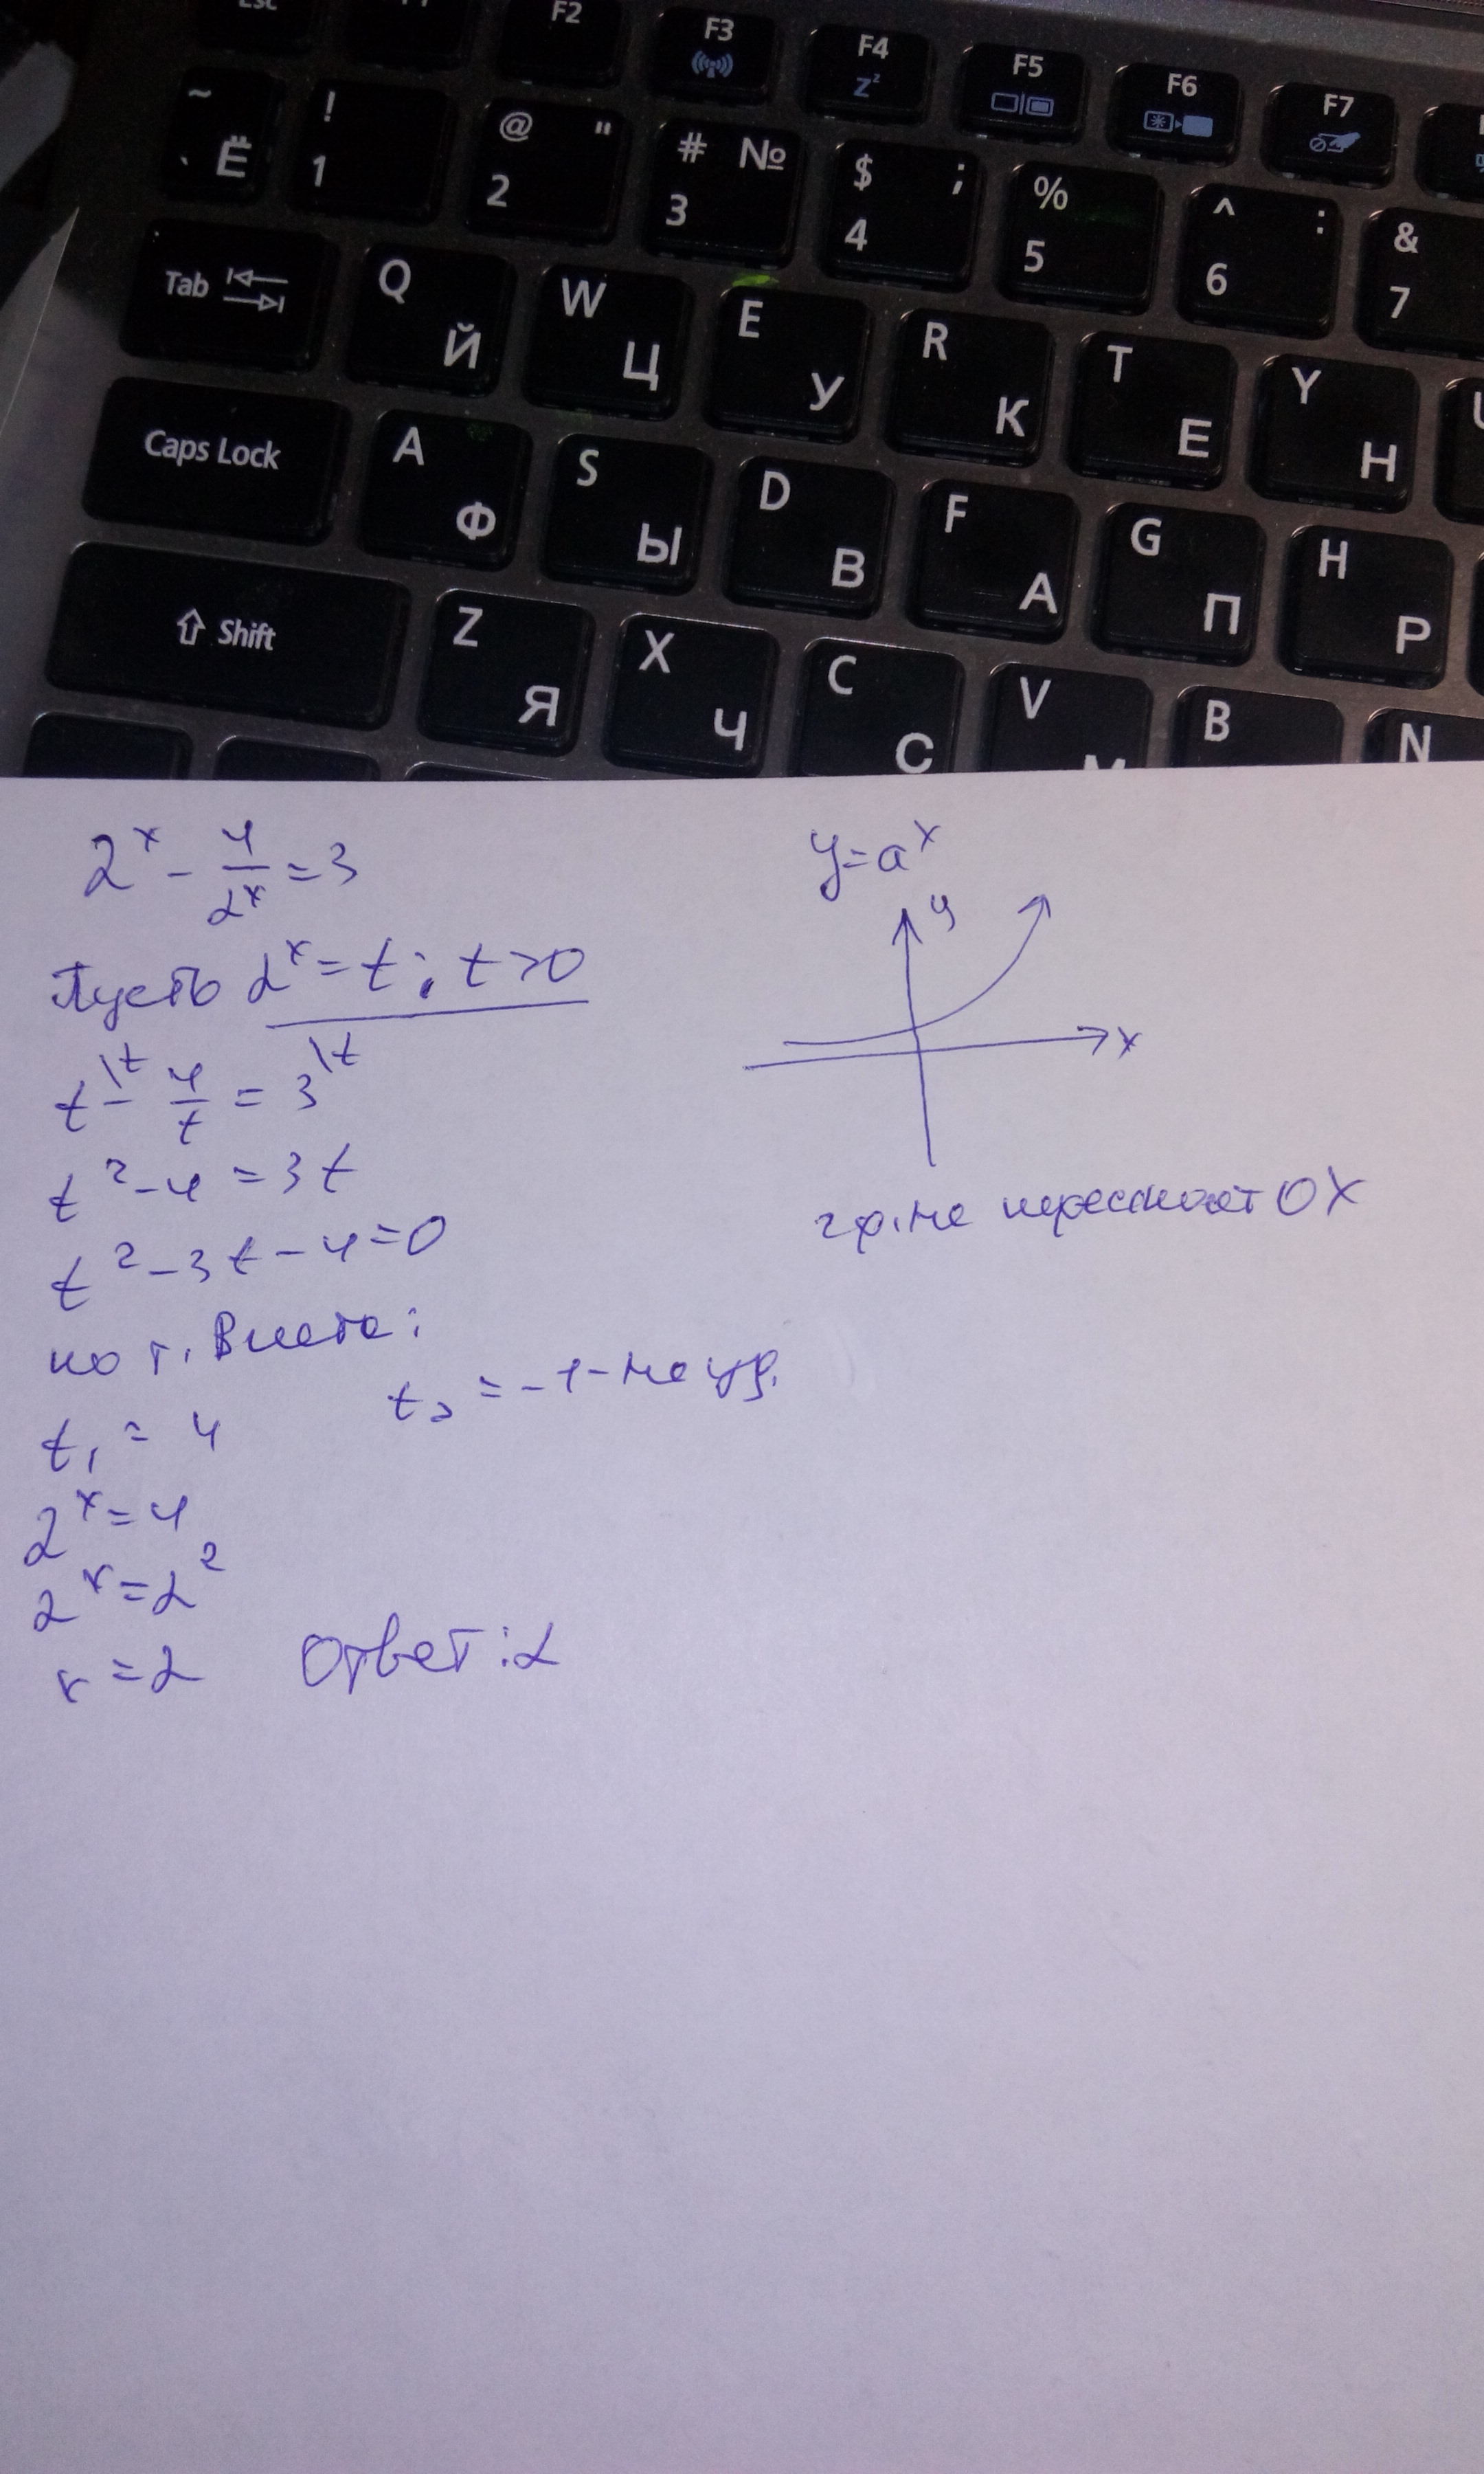 Esc F2 F3 F4 F5 F6 F7
~ ` Ё ! 1 @ " 2 # № 3 $ ; 4 % 5 ^ : 6 & 7
Tab Q Й W Ц E У R К T Е Y Н
Caps Lock A Ф S Ы D В F А G П H Р
Shift Z Я X Ч C С V М B N
2^x - 4/2^x = 3
Пусть 2^x = t; t>0
t^\t - 4/t = 3^\t
t² - 4 = 3t
t² - 3t - 4 = 0
по т. Виета:
t₁ = 4 t₂ = -1 - не ур.
2^x = 4
2^x = 2²
x = 2 Ответ: 2
y = a^x
y
x
гр. не пересекает OX